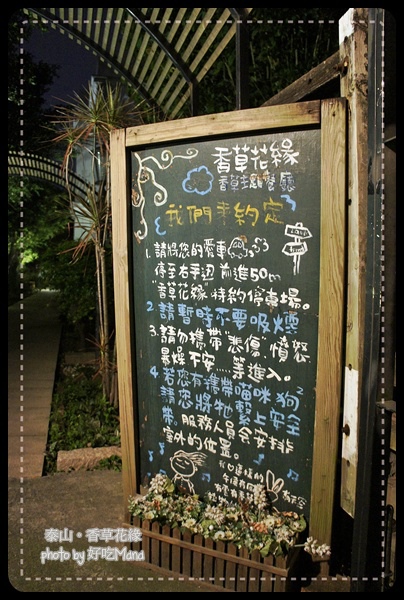 香草花緣
香草主題餐廳
我們來約定
1. 請將您的愛車
停至右手边 前進50m
"香草花緣"特約停車場。
2. 請暫時不要吸煙
3. 請勿攜帶"悲傷"憤怒
暴燥不安....等進入。
4. 若您有攜帶喵咪狗
請您將牠繫上安全
帶。服務人員會安排
室外的位置。
泰山·香草花緣
photo by 好吃Mand